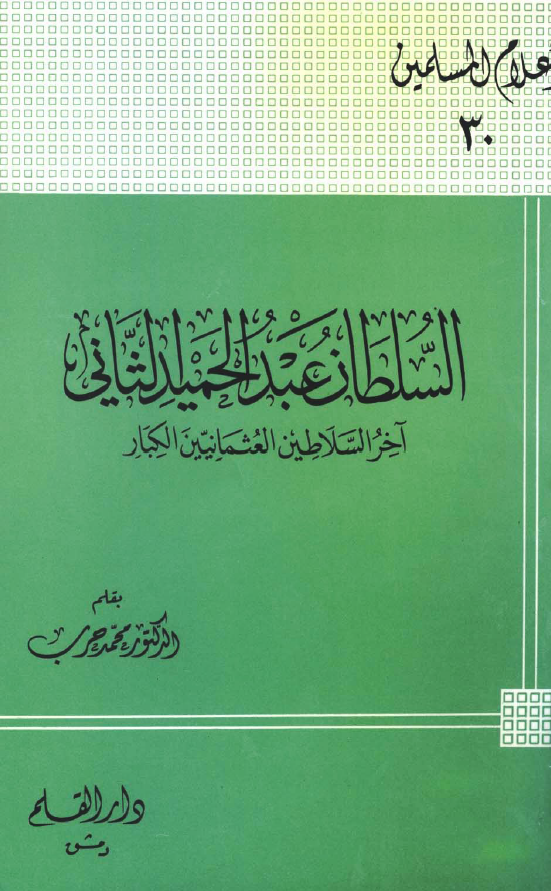 أعلام المسلمين
٣٠
السُّلطَان عَبْدُ الحَميد الثَّاني
آخِرُ السَّلَاطِين العُثمَانِيّينَ الكِبَار
بقلم
الدكتور محمّد حرب
دار القلم
دمشق